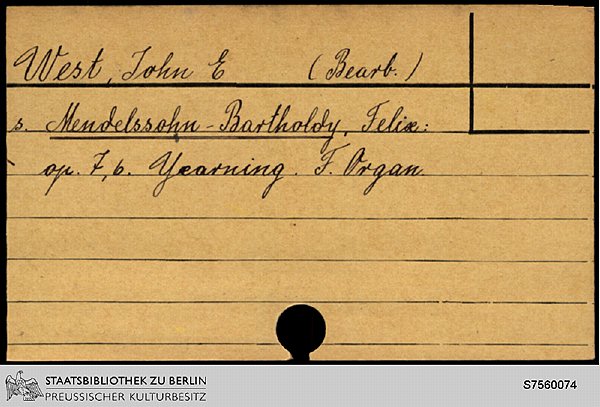 West, John E (Bearb.)
s. Mendelssohn-Bartholdy, Felix:
op. 7,6. Yearning. F. Organ.
STAATSBIBLIOTHEK ZU BERLIN
PREUSSISCHER KULTURBESITZ
S7560074